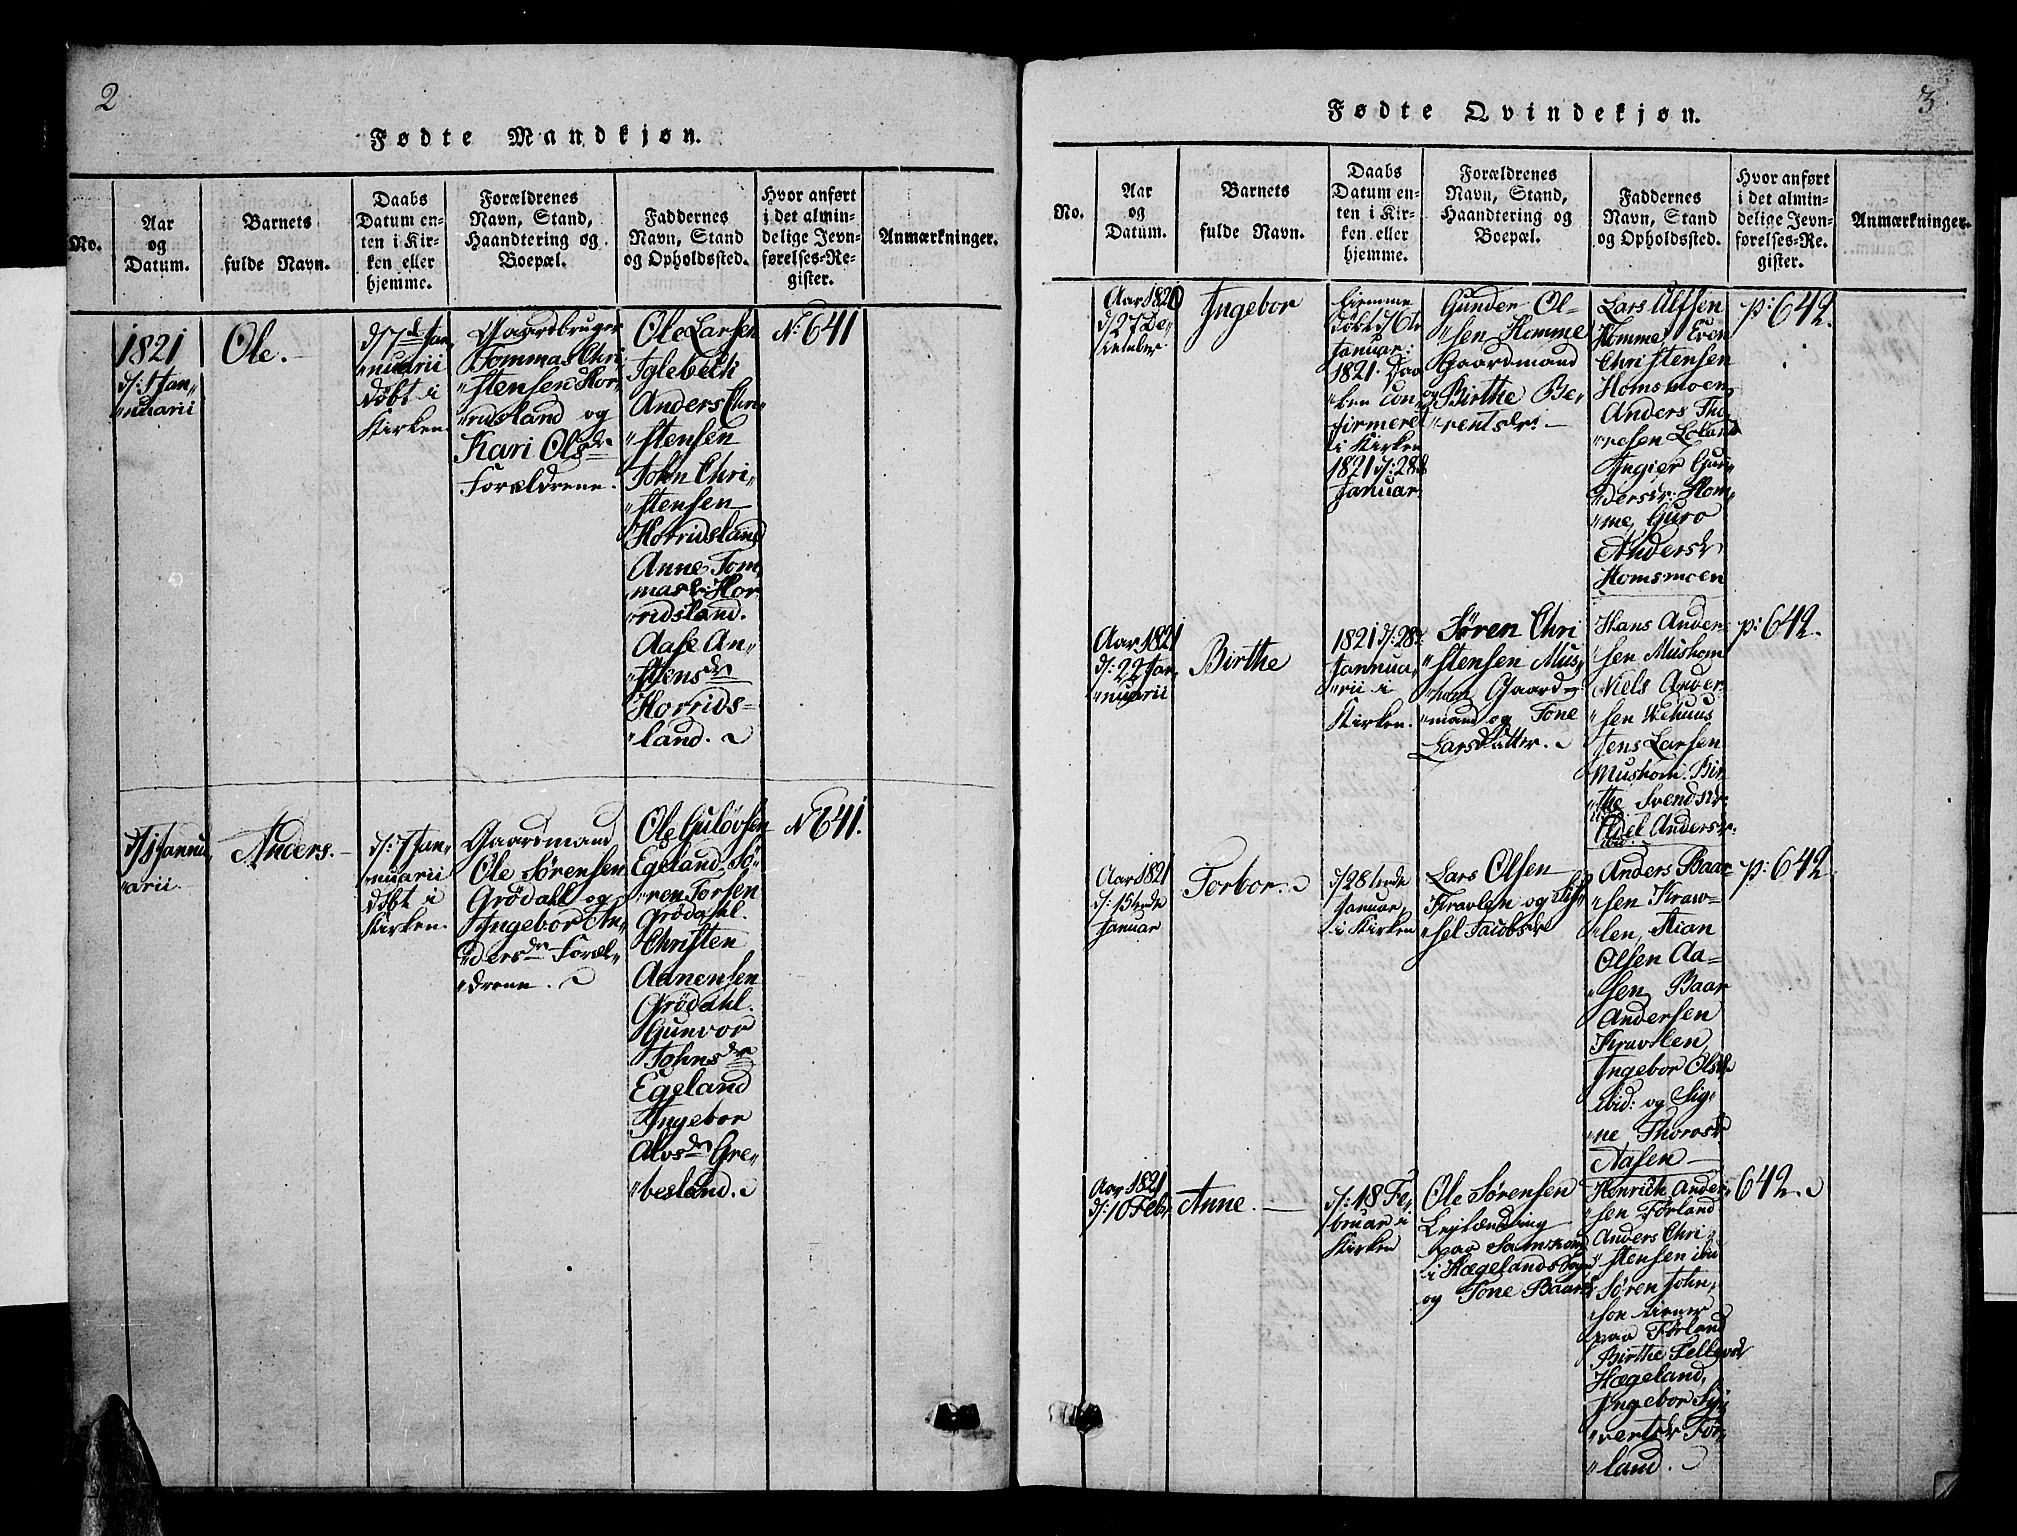 2
Fødte Mandkjøn.
No.
Aar
og
Datum.
Barnets
fulde Navn.
Daabs
Datum en-
ten i Kir-
ken eller
hjemme.
Forældrenes
Navn, Stand,
Haandtering og
Boepæl.
Faddernes
Navn, Stand
og Opholdssted.
Hvor anført
i det almin-
delige Jevn-
førelses-Re-
gister.
Anmærkninger.
1821
d: 1 Jan„
„nuarii
Ole.
d 7de Jan„
„nuarii
døbt i
Kirken.
Gaardbruger
Tommas Chri„
„stensen Hor„
„ridsland og
Kari Olsdr
Forældrene.
Ole Larsen
Iglebech
Anders Chri„
„stensen
John Chri„
„stensen
Horridsland
Anne Tom„
masdr Hor„
„ridsland.
Aase An„
„stensdr
Horrids=
„land.
No 641
Januu„
„arii.
Anders.
d: 7 Jan„
„nuarii
døbt i
Kirken.
Gaardmand
Ole Sørensen
Grødahl og
Ingebor An„
„dersdr Foræl„
„drene.
Ole Guløvsen
Egeland. Sø„
„ren Tersen
Grødahl.
Christen
Aanensen
Grødahl.
Gunvor
Johnsdr
Egeland
Ingebor
Alvsdr Gre„
„besland.
No 641.
3.
Fødte Qvindekjøn.
No.
Aar
og
Datum.
Barnets
fulde Navn.
Daabs
Datum en-
ten i Kir-
ken eller
hjemme.
Forældrenes
Navn, Stand,
Haandtering og
Boepæl.
Faddernes
Navn, Stand
og Opholdssted.
Hvor anført
i det almin-
delige Jevn-
førelses-Re-
gister.
Anmærkninger.
Aar 1820
d: 27 De„
„cember
Ingebor
hjemme
døbt d 6te
Januar:
1821. Daa„
„ben con„
firmeret
i Kirken
1821 d: 28d
Januar
Gunder Ol„
„sen Homme
Gaardmand
og Birthe Be„
„rentsdr:
Lars Ulfsen
Homme, Even
Christensen
Homsmoen
Anders Tho„
„resen Løland
Ingier Gun„
„dersdr: Hom„
„me, Guro
Andersdr
Homsmoen
p: 642.
Aar 1821
d: 22 Jan„
„nuarii
Birthe
1821 d: 28d
Jannua„
„rii i
Kirken.
Søren Chri
„stensen Mus„
„hom Gaard=
„mand og Tone
Larsdatter.
Hans Ander„
sen Mushom
Niels Ander„
„sen Wehuus
Jens Larsen
Mushom. Bir„
„the Svendsdr
ibid:
Adel Andersdr:
ibid.
p: 642.
Aar 1821
d: 15tende
Januar
Torbor.
d/28tende
Januar,
i Kirken
Lars Olsen
Kravlen og
„sel Jacobsdr
Anders Baar„
„sen Kraw=
„len, Stian
Olsen Aa=
„sen, Baar
Andersen
Kravlen,
Ingebor Olsdr
ibid: og Sig„
„ne Thorasdr
Aasen
p: 642.
Aar 1821
d: 10 Febr
Anne.
d: 18 Fe„
bruar i
Kirken
Ole Sørensen
Leilænding
paa
i Hægelands Sogn
og Tone Baarsdr
Henrich Ander„
„sen Førland
Anders Chri„
„stensen ibid
Søren John„
„son tiener
paa Førland
Birthe Tellevsdr
Hægeland,
Ingebor Sy„
„vertsdr Før„
„land.
642.